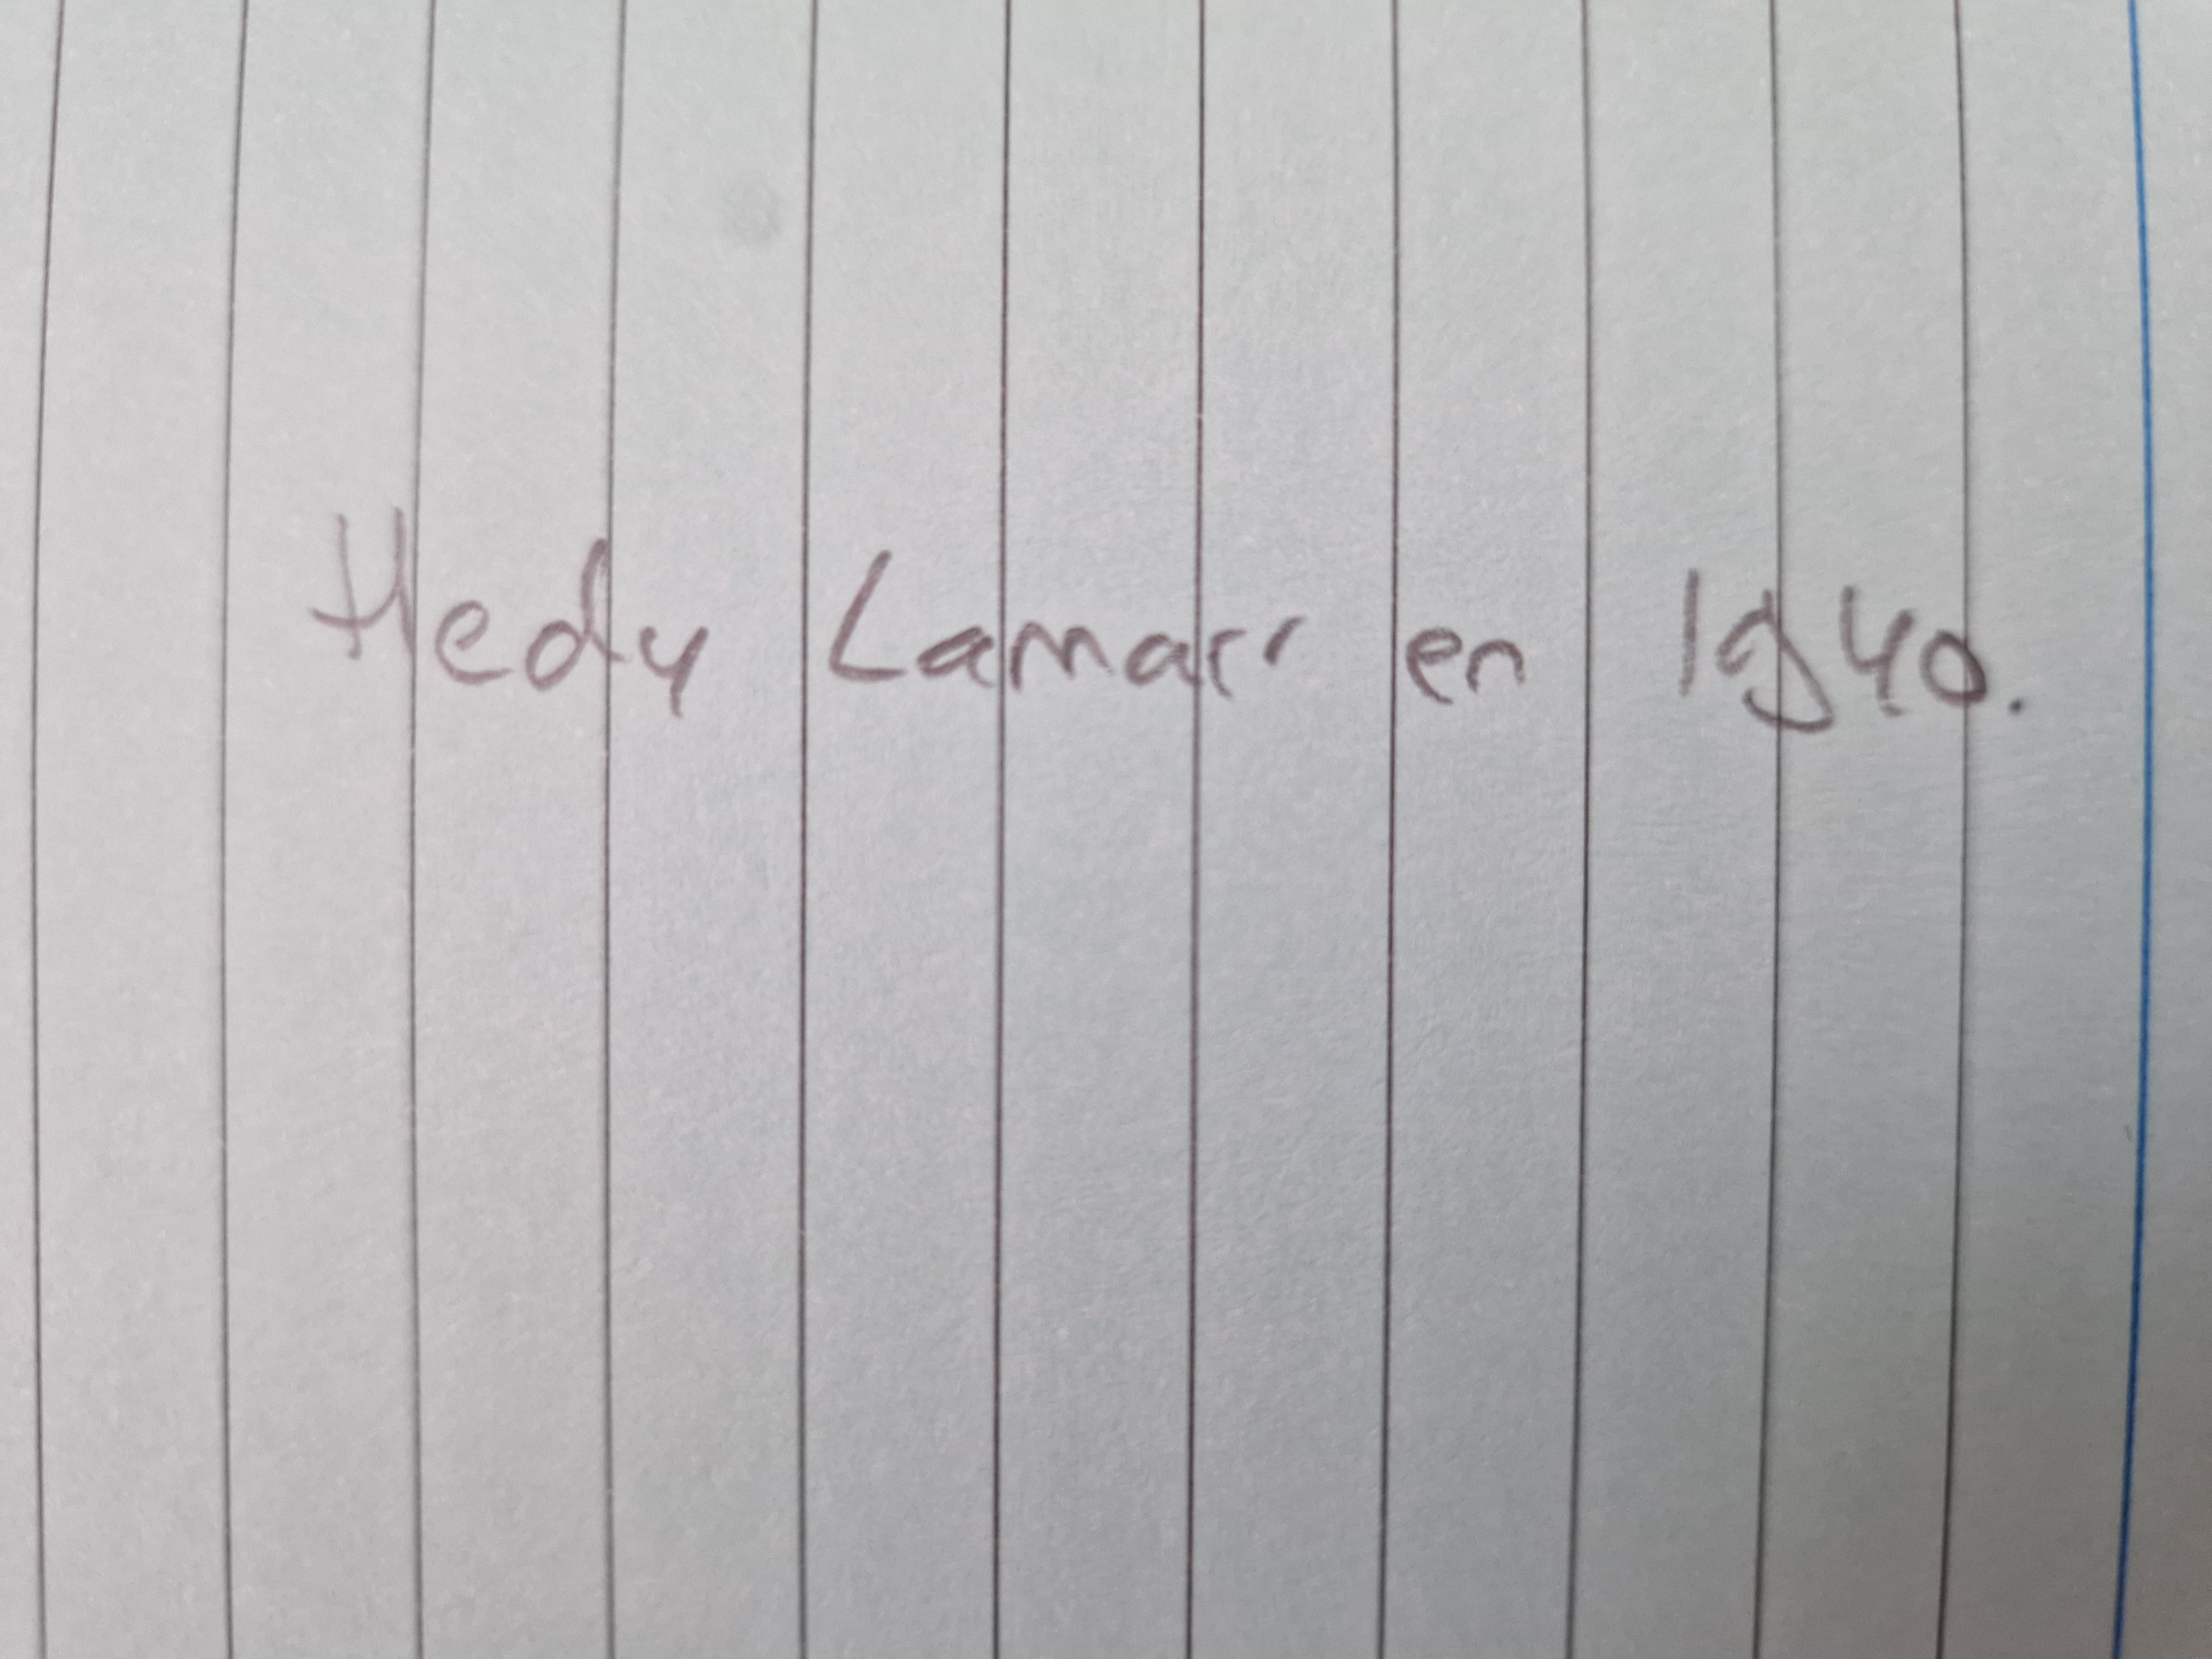 Hedy Lamarr en 1940.